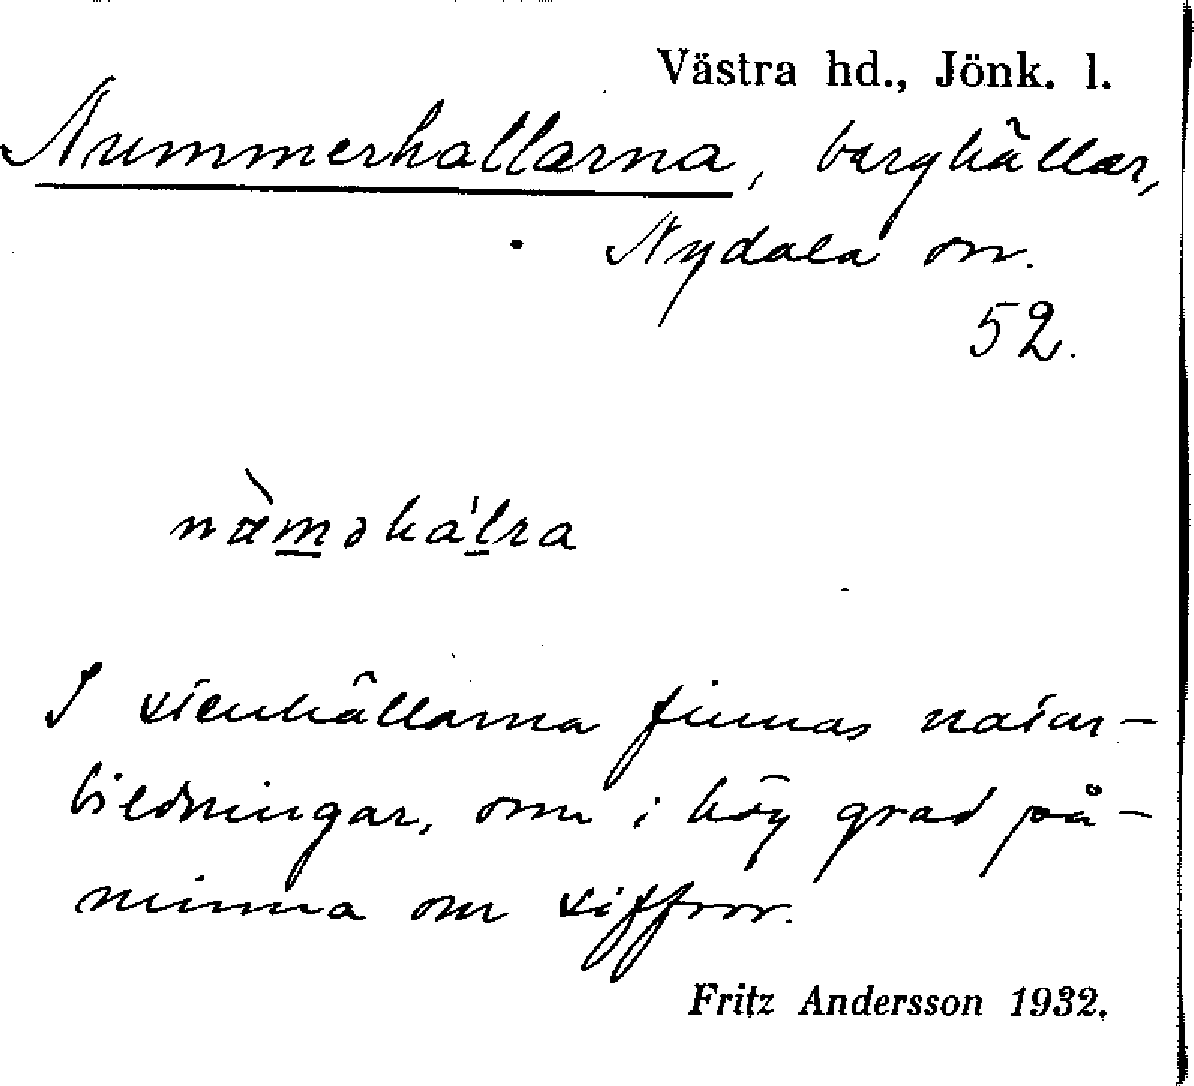 Västra hd., Jönk. l.
Nummerhallarna, berghällar,
Nydala sn.
52.
I stenhällarna finnas natur-
bildningar, som i hög grad på-
minna om siffror.
Fritz Andersson 1932.